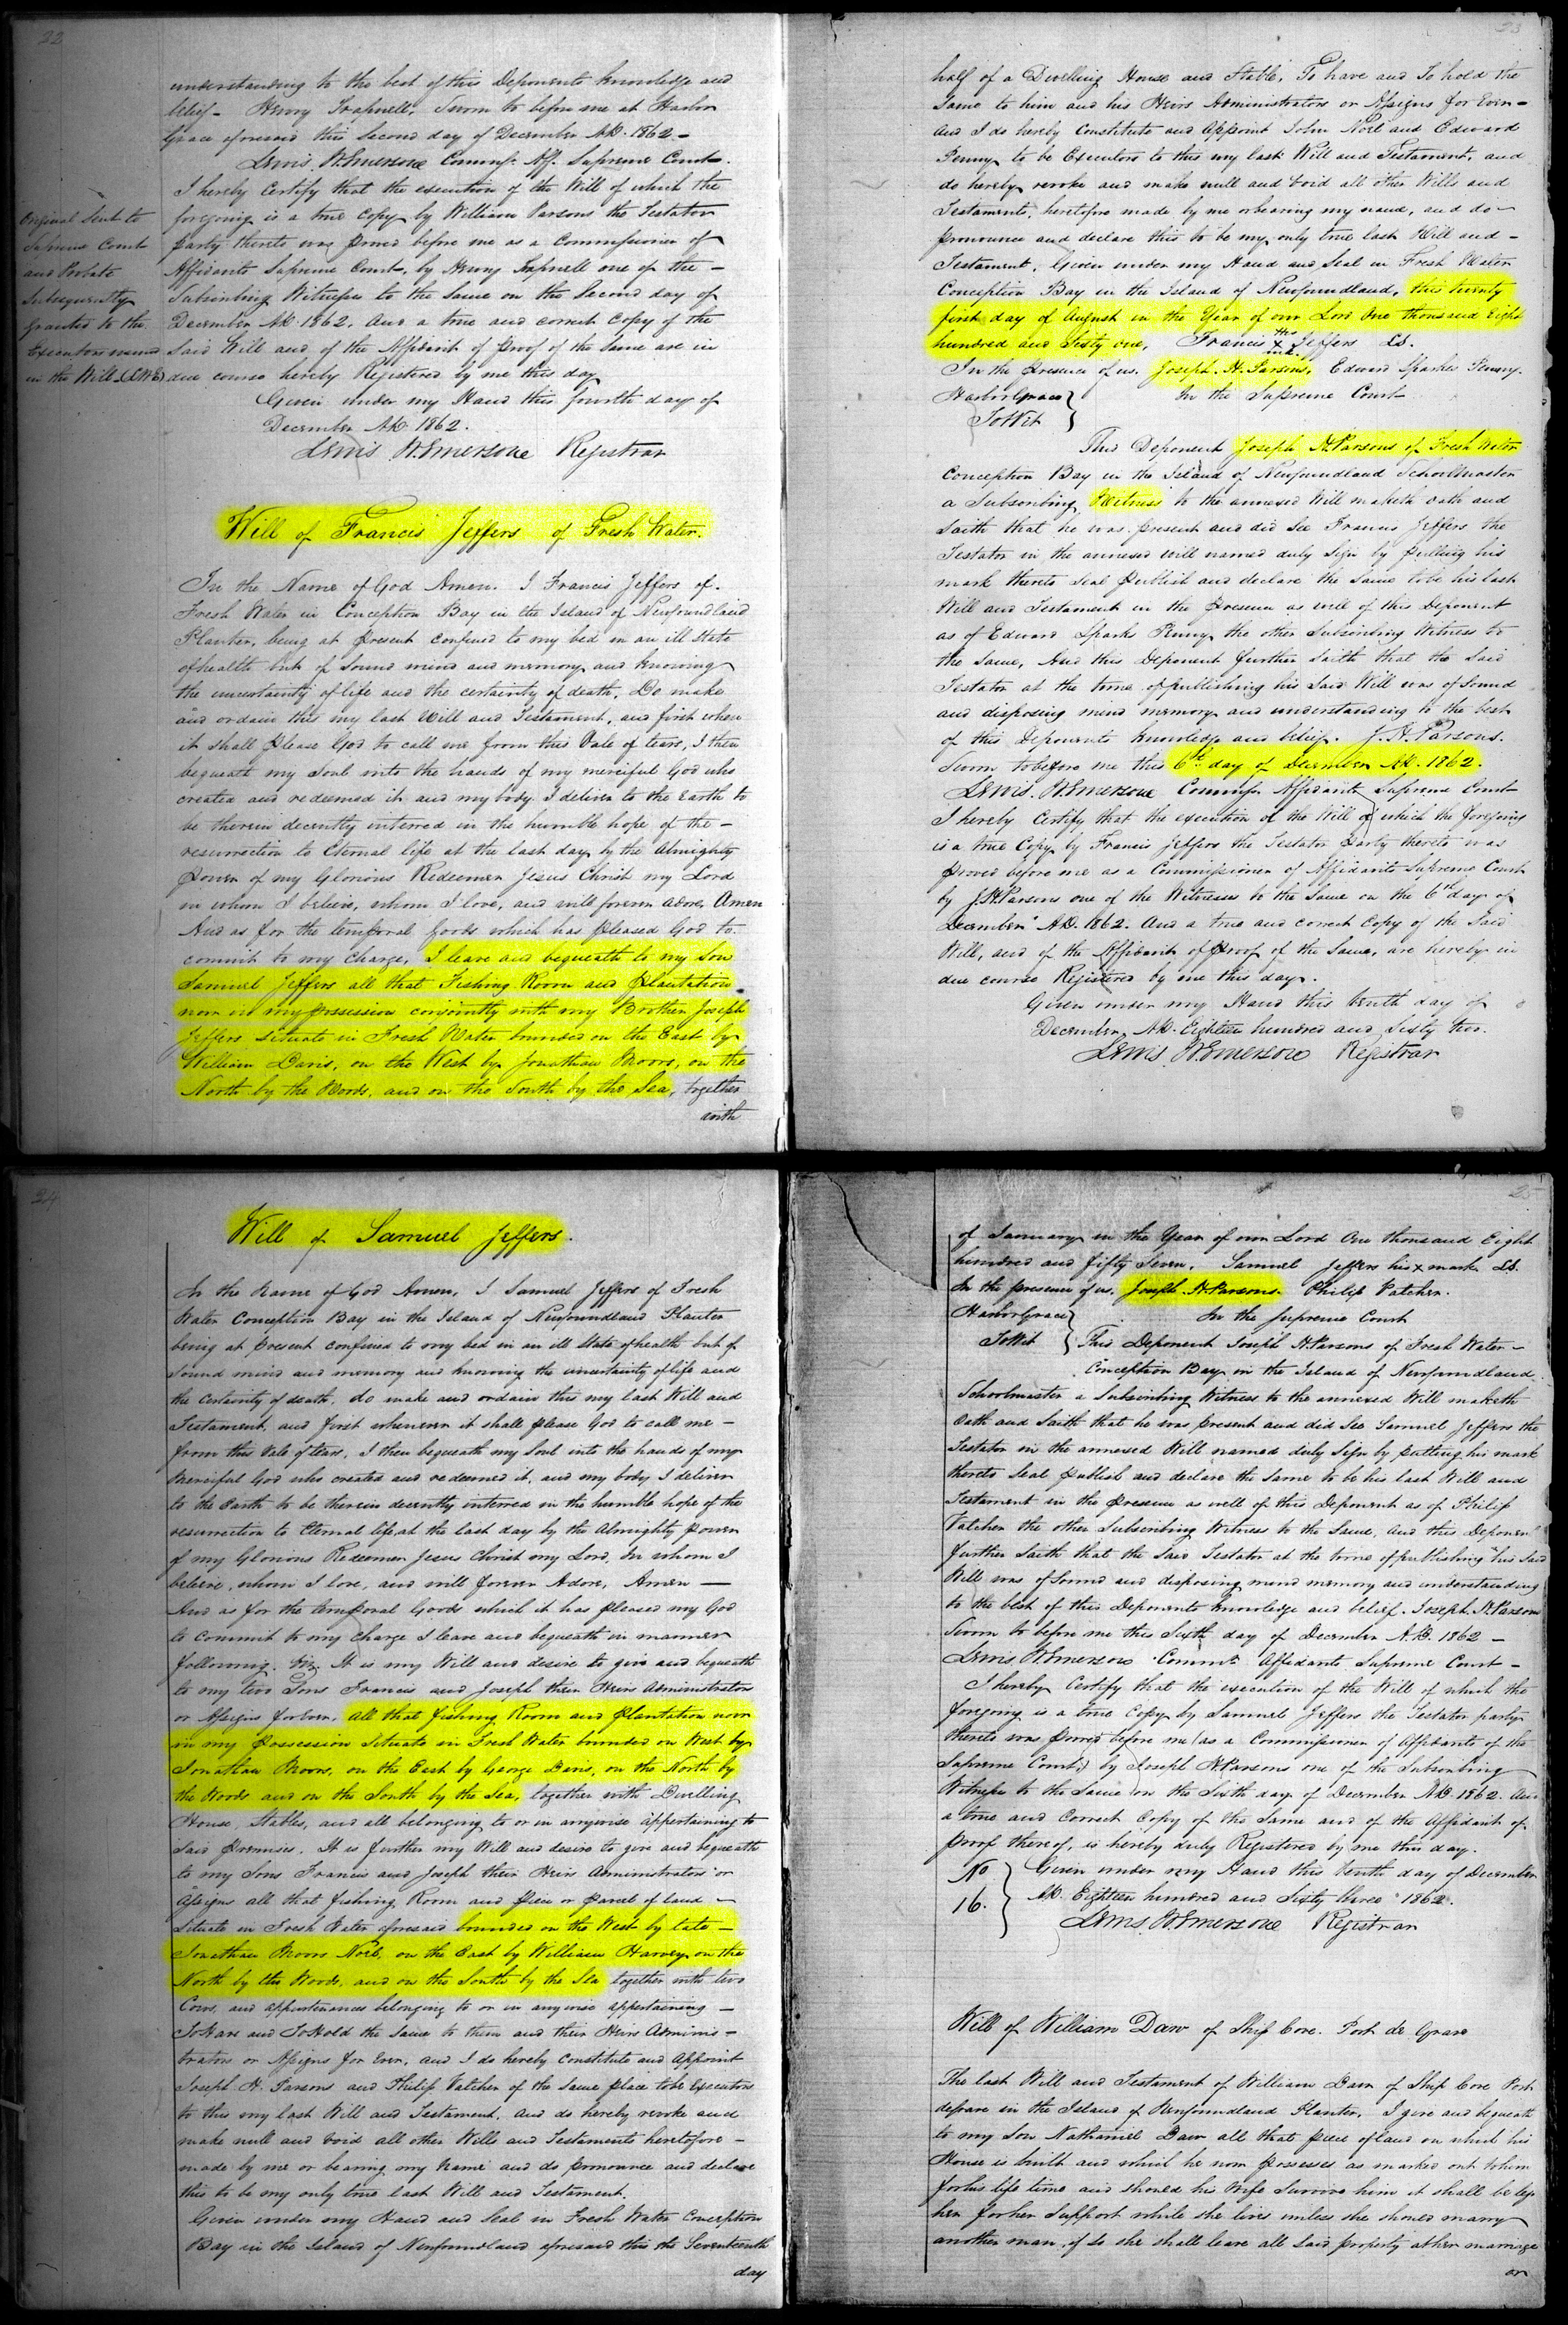 22
understanding to the best of this Deponents knowledge and
belief - Henry Trapnell. Sworn to before me at Harbor
Grace aforesaid this Second day of December A.D. 1862 -
Lewis W. Emerson Commr. Aff. Supreme Court.
I hereby Certify that the execution of the Will of which the
foregoing is a true Copy by William Parsons the Testator
party thereto was proved before me as a Commissioner of
Affidavits Supreme Court, by Henry Trapnell one of the -
Subscribing Witnesses to the Same on the Second day of
December A.D. 1862. And a true and correct Copy of the
Said Will and of the Affidavit of proof of the Same are in
due course hereby Registered by me this day
Given under my Hand this fourth day of
December A.D. 1862.
Lewis W. Emerson Registrar
Original Sent to
Supreme Court
and Probate
Subsequently
Granted to the
Executors named
in the Will (LWE)
Will of Francis Jeffers of Fresh Water.
In the Name of God Amen. I Francis Jeffers of
Fresh Water in Conception Bay in the Island of Newfoundland
Planter, being at present confined to my bed in an ill State
of health but of Sound mind and memory and knowing
the uncertainty of life and the certainty of death, Do make
and ordain this my last Will and Testament, and first when
it shall please God to call me from this Vale of tears, I then
bequeath my Soul into the hands of my merciful God who
created and redeemed it and my body I deliver to the Earth to
be therein decently interred in the humble hope of the -
resurrection to Eternal life at the last day by the Almighty
Power of my Glorious Redeemer Jesus Christ my Lord
in whom I believe, whom I love, and will forever adore, Amen
And as for the temporal Goods which has pleased God to
commit to my charge, I leave and bequeath to my Son
Samuel Jeffers all that Fishing Room and Plantation
now in my possession conjointly with my Brother Joseph
Jeffers situate in Fresh Water bounded on the East by
William Davis, on the West by Jonathan Moors, on the
North by the Woods, and on the South by the Sea, together
with
23
half of a Dwelling House and Stable, To have and To hold the
Same to him and his Heirs Administrators or Assigns for Ever -
And I do hereby Constitute and Appoint John Noel and Edward
Penny to be Executors to this my last Will and Testament, and
do hereby revoke and make null and void all other Wills and
Testaments, heretofore made by me or bearing my name, and do -
pronounce and declare this to be my only true last Will and -
Testament. Given under my Hand and Seal in Fresh Water
Conception Bay in the Island of Newfoundland, this twenty
first day of August in the Year of our Lord One thousand Eight
hundred and Sixty one, Francis his x mk. Jeffers LS.
In the presence of us. Joseph. H. Parsons, Edward Sparks Penny.
Harbor Grace } In the Supreme Court
To Wit }
This Deponent Joseph H Parsons of Fresh Water
Conception Bay in the Island of Newfoundland Schoolmaster
a Subscribing Witness to the annexed Will maketh oath and
Saith that he was present and did See Francis Jeffers the
Testator in the annexed will named duly Sign by putting his
mark thereto Seal Publish and declare the Same to be his last
Will and Testament in the presence as well of this Deponent
as of Edward Sparks Penny the other Subscribing Witness to
the Same, And this Deponent further Saith that the Said
Testator at the time of publishing his Said Will was of Sound
and disposing mind memory and understanding to the best
of this Deponents knowledge and belief. J. H. Parsons.
Sworn to before me this 6th day of December A.D. 1862.
Lewis. W. Emerson Commr Affidavits Supreme Court
I hereby Certify that the execution of the Will of which the foregoing
is a true Copy by Francis Jeffers the Testator party thereto was
proved before me as a Commissioner of Affidavits Supreme Court
by J. H. Parsons one of the Witnesses to the Same on the 6th day of
December A.D. 1862. And a true and correct Copy of the Said
Will, and of the Affidavit of Proof of the Same, are hereby in
due course Registered by me this day.
Given under my Hand this tenth day of
December, A.D. Eighteen hundred and Sixty two.
Lewis W Emerson Registrar
24
Will of Samuel Jeffers.
In the Name of God Amen, I Samuel Jeffers of Fresh
Water Conception Bay in the Island of Newfoundland Planter
being at present confined to my bed in an ill State of health but of
Sound mind and memory and knowing the uncertainty of life and
the certainty of death, do make and ordain this my last Will and
Testament, and first whenever it shall please God to call me -
from this Vale of tears, I then bequeath my Soul into the hands of my
Merciful God who created and redeemed it, and my body I deliver
to the Earth to be therein decently interred in the humble hope of the
resurrection to Eternal life at the last day by the Almighty Power
of my Glorious Redeemer Jesus Christ my Lord, in whom I
believe, whom I love, and will forever Adore, Amen -
And as for the temporal Goods which it has pleased my God
to Commit to my Charge I leave and bequeath in manner
following. Viz. It is my Will and desire to give and bequeath
to my two Sons Francis and Joseph their Heirs Administrators
or Assigns for Ever, all that fishing Room and Plantation now
in my Possession Situate in Fresh Water bounded on West by
Jonathan Moors, on the East by George Davis, on the North by
the Woods and on the South by the Sea, together with Dwelling
House, Stables, and all belonging to or in anywise appertaining to
Said Premises. It is further my Will and desire to give and bequeath
to my Sons Francis and Joseph their Heirs Administrators or
Assigns all that fishing Room and piece or parcel of land -
Situate in Fresh Water aforesaid bounded on the West by late -
Jonathan Moors Noel, on the East by William Harvey on the
North by the Woods, and on the South by the Sea together with two
Cows, and appurtenances belonging to or in anywise appertaining -
To Have and To Hold the Same to them and their Heirs Adminis -
trators or Assigns for Ever, and I do hereby Constitute and Appoint
Joseph H. Parsons and Philip Vatcher of the Same place to be Executors
to this my last Will and Testament, and do hereby revoke and
make null and void all other Wills and Testaments heretofore -
made by me or bearing my Name and do pronounce and declare
this to be my only true last Will and Testament.
Given under my Hand and Seal in Fresh Water Conception
Bay in the Island of Newfoundland aforesaid this the Seventeenth
day
25
of January in the Year of our Lord One thousand Eight
hundred and fifty Seven. Samuel Jeffers his x mark LS.
In the presence of us. Joseph. H. Parsons. Philip Vatcher.
Harbor Grace } In the Supreme Court
To Wit } This Deponent Joseph H. Parsons of Fresh Water -
Conception Bay in the Island of Newfoundland
Schoolmaster a Subscribing Witness to the annexed Will maketh
Oath and Saith that he was present and did See Samuel Jeffers the
Testator in the annexed Will named duly Sign by putting his mark
thereto Seal Publish and declare the Same to be his last Will and
Testament in the presence as well of this Deponent as of Philip
Vatcher the other Subscribing Witness to the Same, and this Deponent
further Saith that the Said Testator at the time of publishing his Said
Will was of Sound and disposing mind memory and understanding
to the best of this Deponents knowledge and belief. Joseph. H. Parsons
Sworn to before me this Sixth day of December A.D. 1862 -
Lewis W Emerson Commr Affidavits Supreme Court -
I hereby Certify that the execution of the Will of which the
foregoing is a true Copy by Samuel Jeffers the Testator party
thereto was proved before me (as a Commissioner of Affidavits of the
Supreme Court) by Joseph H Parsons one of the Subscribing
Witnesses to the Same on the Sixth day of December A.D. 1862. And
a true and Correct Copy of the Same and of the Affidavit of
proof thereof, is hereby duly Registered by me this day.
No } Given under my Hand this tenth day of December
16. } A.D. Eighteen hundred and Sixty three 1862.
Lewis W Emerson Registrar
Will of William Daw of Ship Cove. Port de Grave
The last Will and Testament of William Daw of Ship Cove Port
de Grave in the Island of Newfoundland Planter. I give and bequeath
to my Son Nathaniel Daw all that piece of land on which his
House is built and which he now possesses as marked out to him
for his life time and should his Wife Survive him it shall be left
her for her Support while she lives unless she should marry
another man, if so she shall leave all Said property at her marriage
or